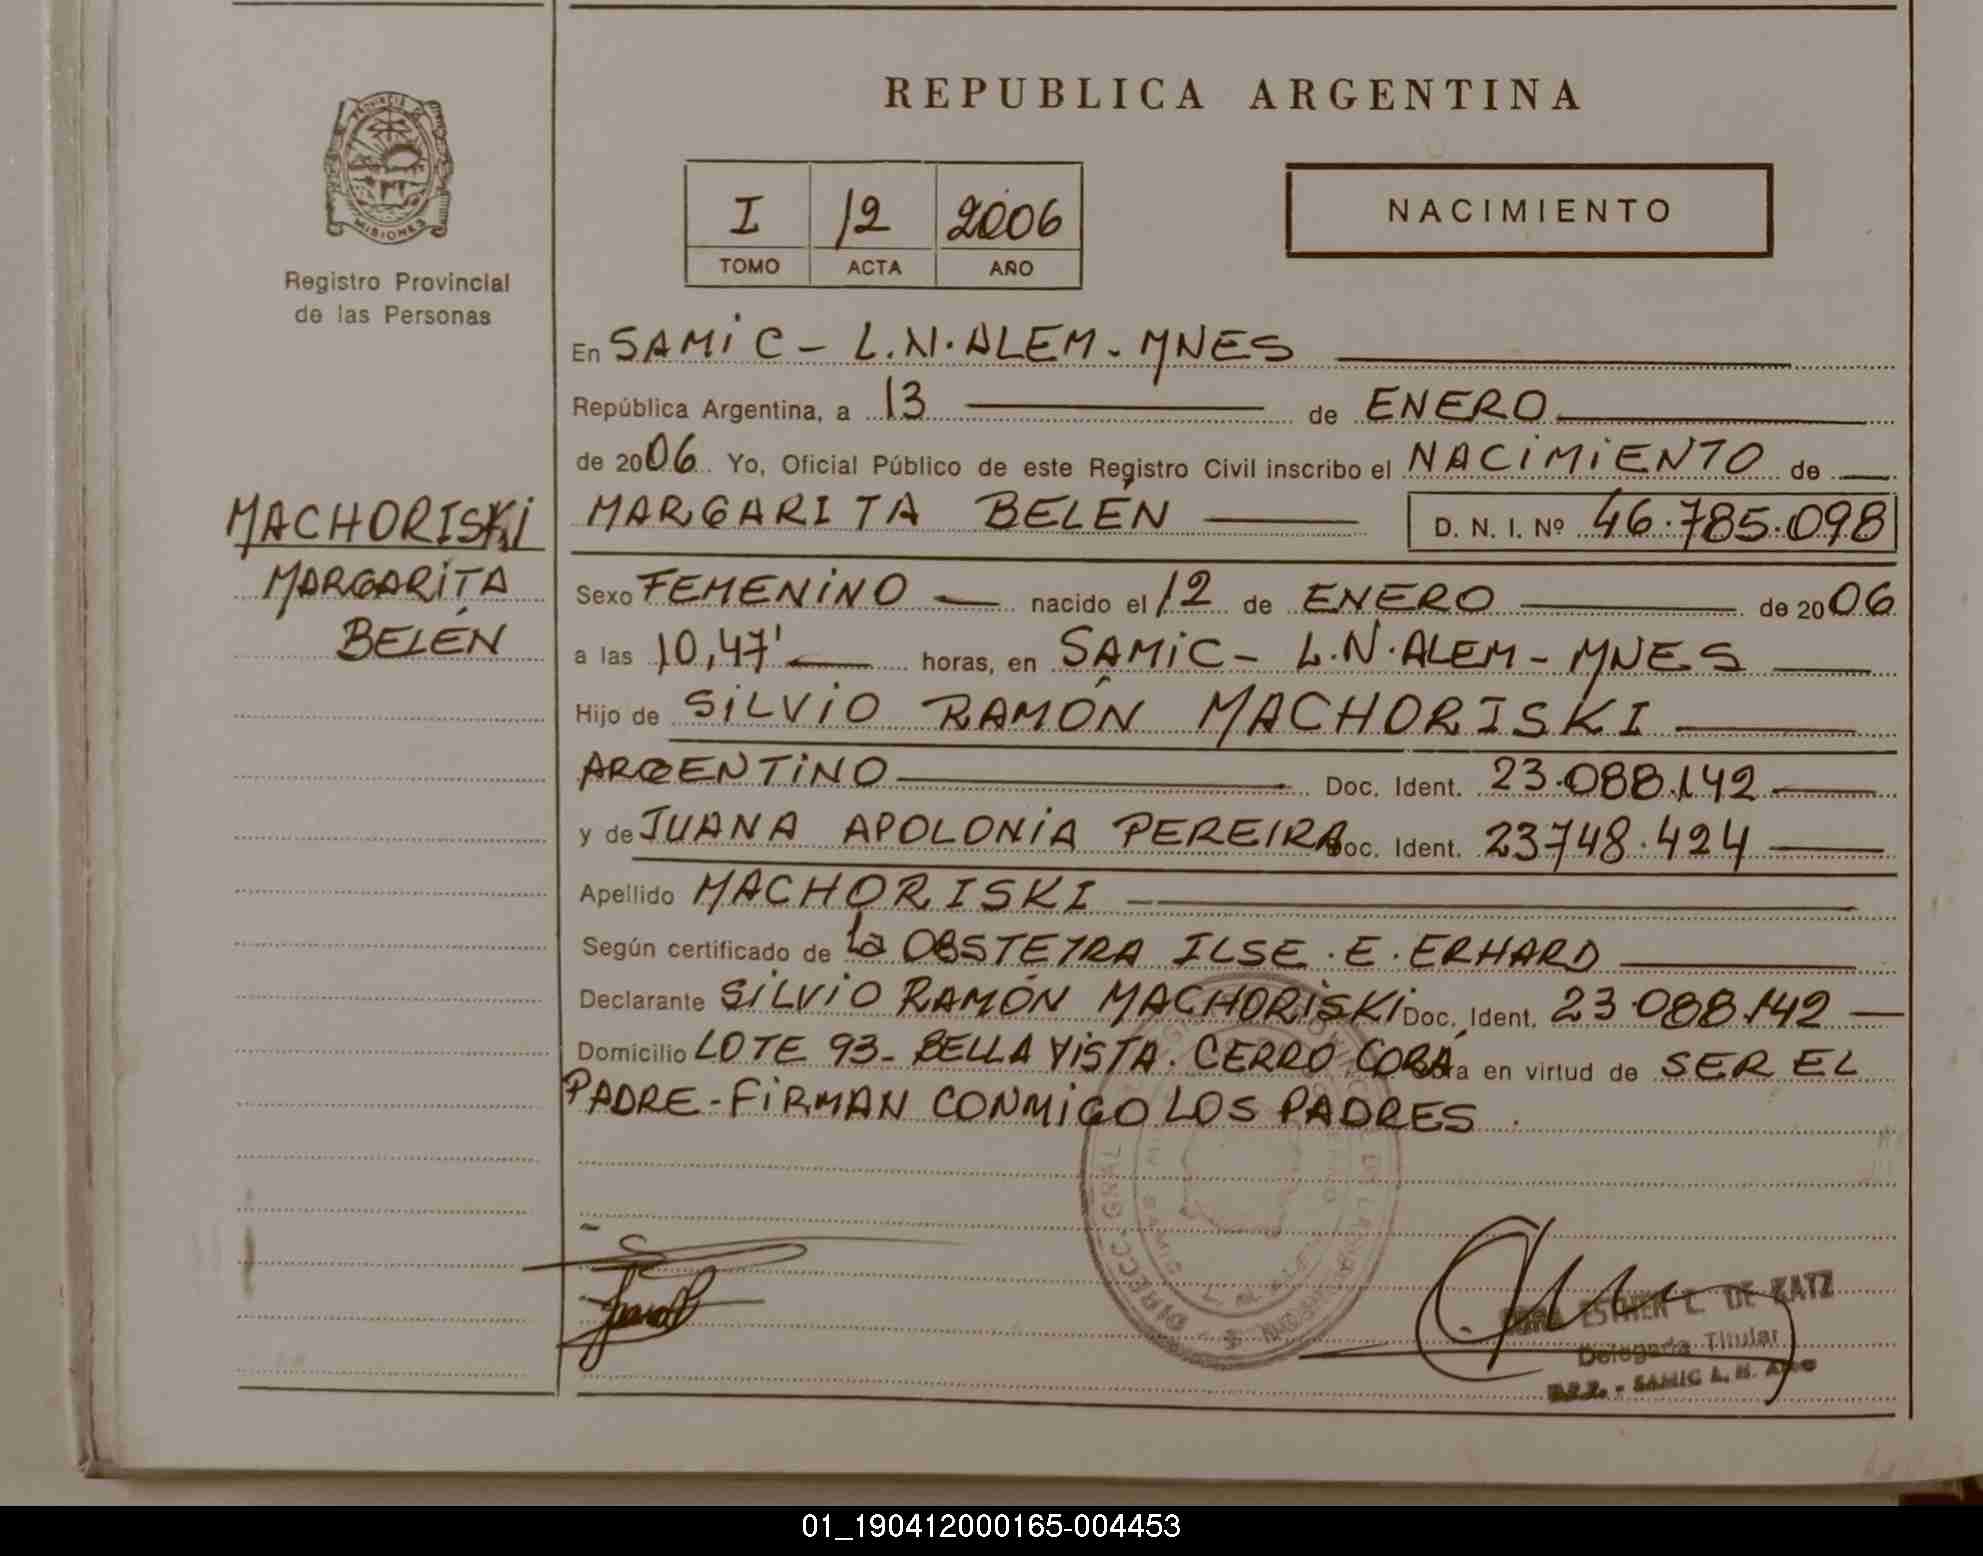 REPUBLICA ARGENTINA
PROVINCIA DE MISIONES
Registro Provincial
de las Personas
I 12 2006
TOMO ACTA AÑO
NACIMIENTO
En SAMIC - L.N.ALEM - MNES
República Argentina, a 13 de ENERO
de 2006 Yo, Oficial Público de este Registro Civil inscribo el NACIMIENTO de
MARGARITA BELÉN D. N. I. Nº 46.785.098
MACHORISKI
MARGARITA
BELÉN
Sexo FEMENINO nacido el 12 de ENERO de 2006
a las 10,47' horas, en SAMIC - L.N.ALEM - MNES
Hijo de SILVIO RAMÓN MACHORISKI
ARGENTINO Doc. Ident. 23.088.142
y de JUANA APOLONIA PEREIRA Doc. Ident. 23748.424
Apellido MACHORISKI
Según certificado de la OBSTETRA ILSE . E . ERHARD
Declarante SILVIO RAMÓN MACHORISKI Doc. Ident. 23.088.142
Domicilio LOTE 93 - BELLA VISTA . CERRO CORÁ en virtud de SER EL
PADRE - FIRMAN CONMIGO LOS PADRES .
DIRECC. GRAL
ESTHER E. DE KATZ
Delegada Titular
SAMIC L. N. Alem
01_190412000165-004453